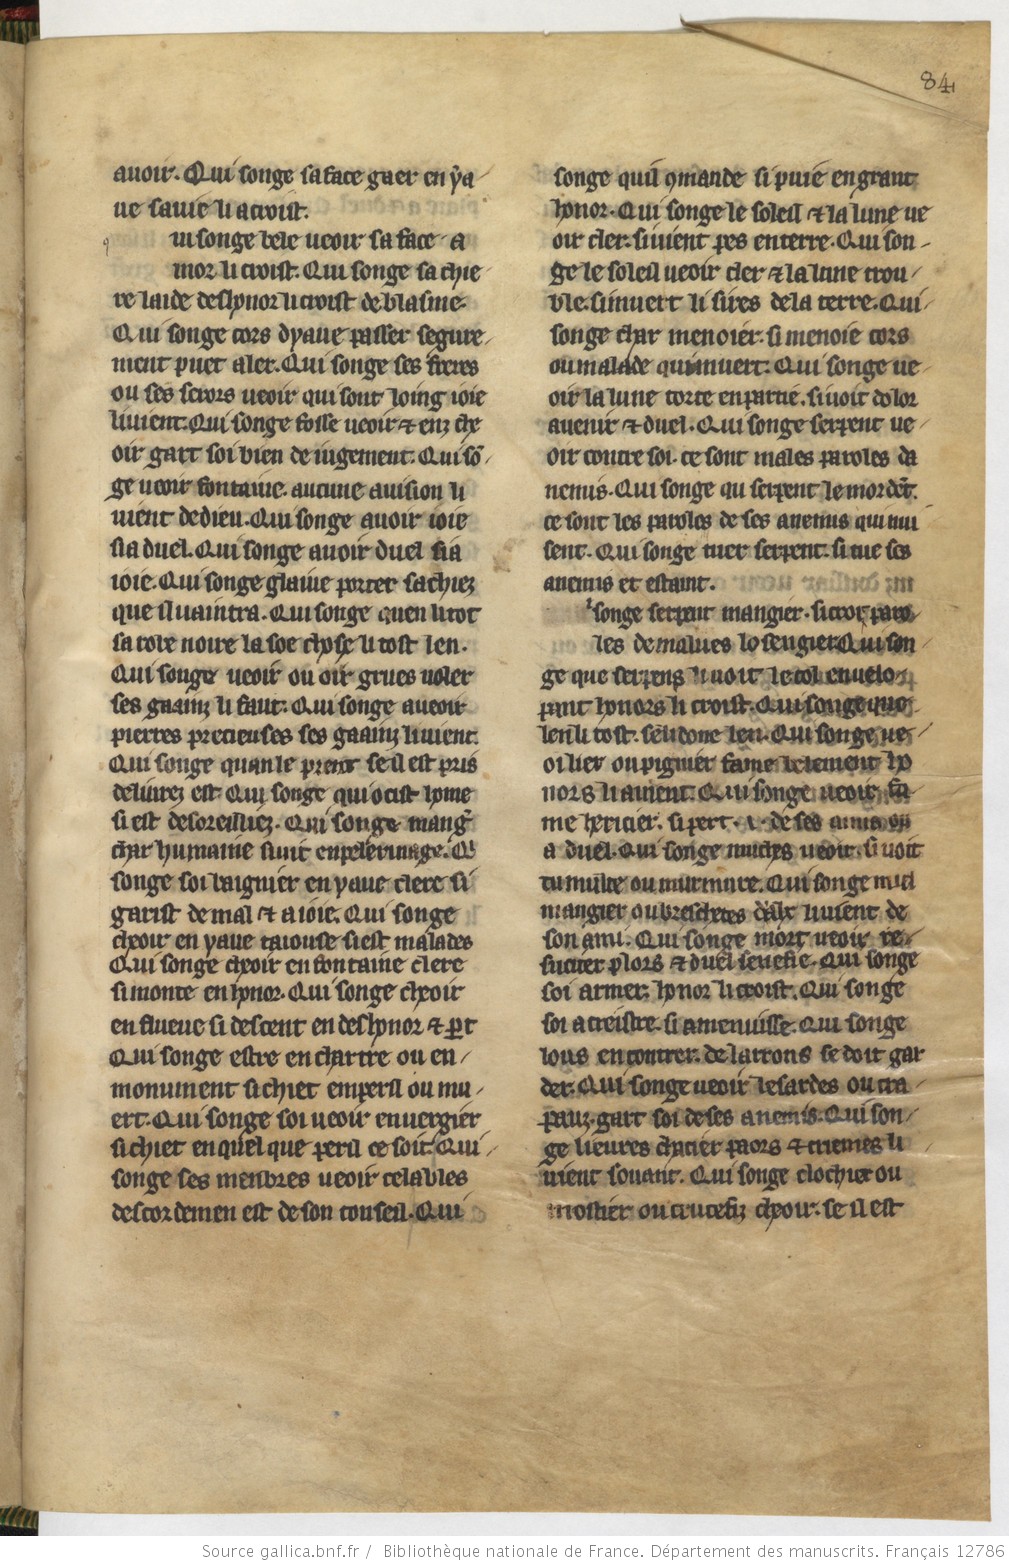 84
avoir. Qui songe sa face gaer en ya
ue sa uie li acroist.
ui songe bele ueoir sa face a
mor li croist. Qui songe sa chie
re laide deshonor li croist de blasme.
Qui songe cors dyaue passer segure
ment puet aler. Qui songe ses freres
ou ses serors ueoir qui sont loing ioie
li uient. Qui songe fosse ueoir & enz che
oir gart soi bien de iugement. Qui sõ
ge ueoir fontaine. aucune auision li
uient de dieu. Qui songe auoir ioie
si a duel. Qui songe auoir duel si a
ioie. Qui songe glaiue porter sachiez
que il uaintra. Qui songe quen li tot
sa robe noire la soe chose li tost len.
Qui songe ueoir ou oir grues uoler
ses gaainz li faut. Qui songe aueoir
pierres precieuses ses gaainz li uient.
Qui songe quan le prent se il est pris
deliurez est Qui songe qui ocist home
si est desoreilliez. Qui songe mang
char humaine si uit en pelerinage. Q
songe soi baignier en yaue clere si
garist de mal & a ioie. Qui songe
cheoir en yaue taiouse si est malades
Qui songe cheoir en fontaine clere
si monte en honor. Qui songe cheoir
en flueue si descent en deshonor & ꝑt
Qui songe estre en chartre ou en
monument si chiet em peril ou mu
ert. Qui songe soi ueoir en uergier
si chiet en quel que peril ce soit. Qui
songe ses menbres ueoir celables
descordemen est de son conseil. Qui
songe quil ꝯmande si puie en grant
honor. Qui songe le soleil & la lune ue
oir cler. si uient pes en terre. Qui son
ge le soleil ueoir cler & la lune trou
ble. si muert li sires de la terre. Qui
songe char menoier. si menoie cors
ou malade qui muert. Qui songe ue
oir la lune torte en partie. si uoit dolor
auenir & duel. Qui songe serpent ue
oir contre soi. ce sont males paroles da
nemis. Qui songe qu serpent le mordẽt.
ce sont les paroles de ses anemis qui nui
sent. Qui songe tuer serpent. si tue ses
anemis et estaint.
songe serpent mangier. si croit paro
les de malues losengier Qui son
ge que serpens li uoit le col enuelo
pant honors li croist. Qui songe que
len li tost. se li done len. Qui songe ue
oi lier ou pignier fame ho
nors li auient. Qui songe ueoir fã
me hericier. si pert .i. de ses amis
a duel. Qui songe muches ueoir. si uoit
tumulte ou murmure. Qui songe miel
mangier ou breschetes li uient de
son ami. Qui songe mort ueoir re
susciter plors & duel senefie. Qui songe
soi armer. honor li croist. Qui songe
soi acreistre. si amenuisse. Qui songe
lous encontrer. de larrons se doit gar
der. Qui songe ueoir lesardes ou cra
pauz. gart soi de ses anemis. Qui son
ge lieures chacier paors & criemes li
uient souant. Qui songe clochier ou
mostier ou crucefiz cheoir. se il est
Source gallica.bnf.fr / Bibliothèque nationale de France. Département des manuscrits. Français 12786